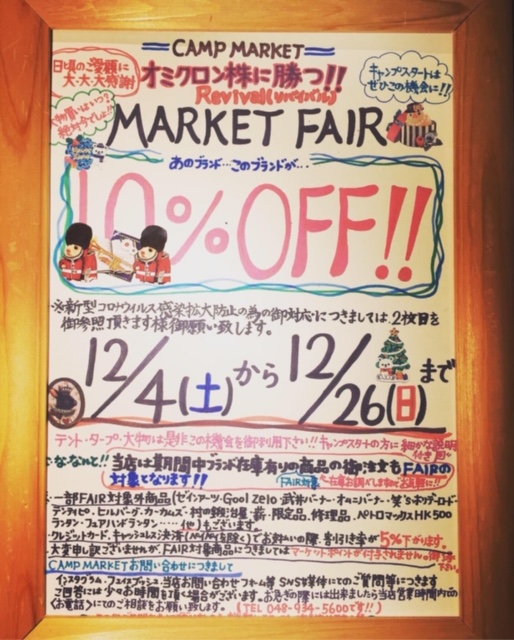 CAMP MARKET
日頃のご愛顧に
大・大・大感謝
オミクロン株に勝つ!!
キャンプスタートは
ぜひこの機会に!!
Revival(リバイバル)
物買いはいつ?
絶対今でしょ!!
MARKET FAIR
あのブランド…このブランドが…
10%OFF!!
※新型コロナウイルス感染拡大防止の為の御対応につきましては、2枚目を
御参照頂きます様御願い致します。
12/4(土)から12/26(日)まで
テント・タープ・大物は是非この機会を御利用下さい!!キャンプスタートの方に細かな説明
付き
な・な・なんと!!当店は期間中ブランド在庫有りの商品の御注文もFAIRの
対象となります!!
FAIR対象
一部FAIR対象外商品(ゼインアーツ・Goal Zero・武井バーナー・オムニバーナー・笑's・
デンティビ・ヒルバーグ・カーカムス・村の鍛冶屋・薪・限定品、修理品、ペトロマックスHK500
ランタン・フュアハンドランタン……他)もございます。
クレジットカード、キャッシュレス決済(を除く)でお支払いの際、割引き率が5%下がります。
大変申し訳ございませんが、FAIR対象商品につきましてはマーケットポイントが付与されませんの
下さい。
CAMP MARKETお問い合わせにつきまして
インスタグラム・フェイスブック・当店お問い合わせフォーム等SNS各箇所にてのご質問等につきます
ご回答には少々お時間を頂く場合がございます。お急ぎの際には出来ましたら当店営業時間内での
(お電話)にてのご相談をお願い致します。(TEL 048-934-5600です!!)